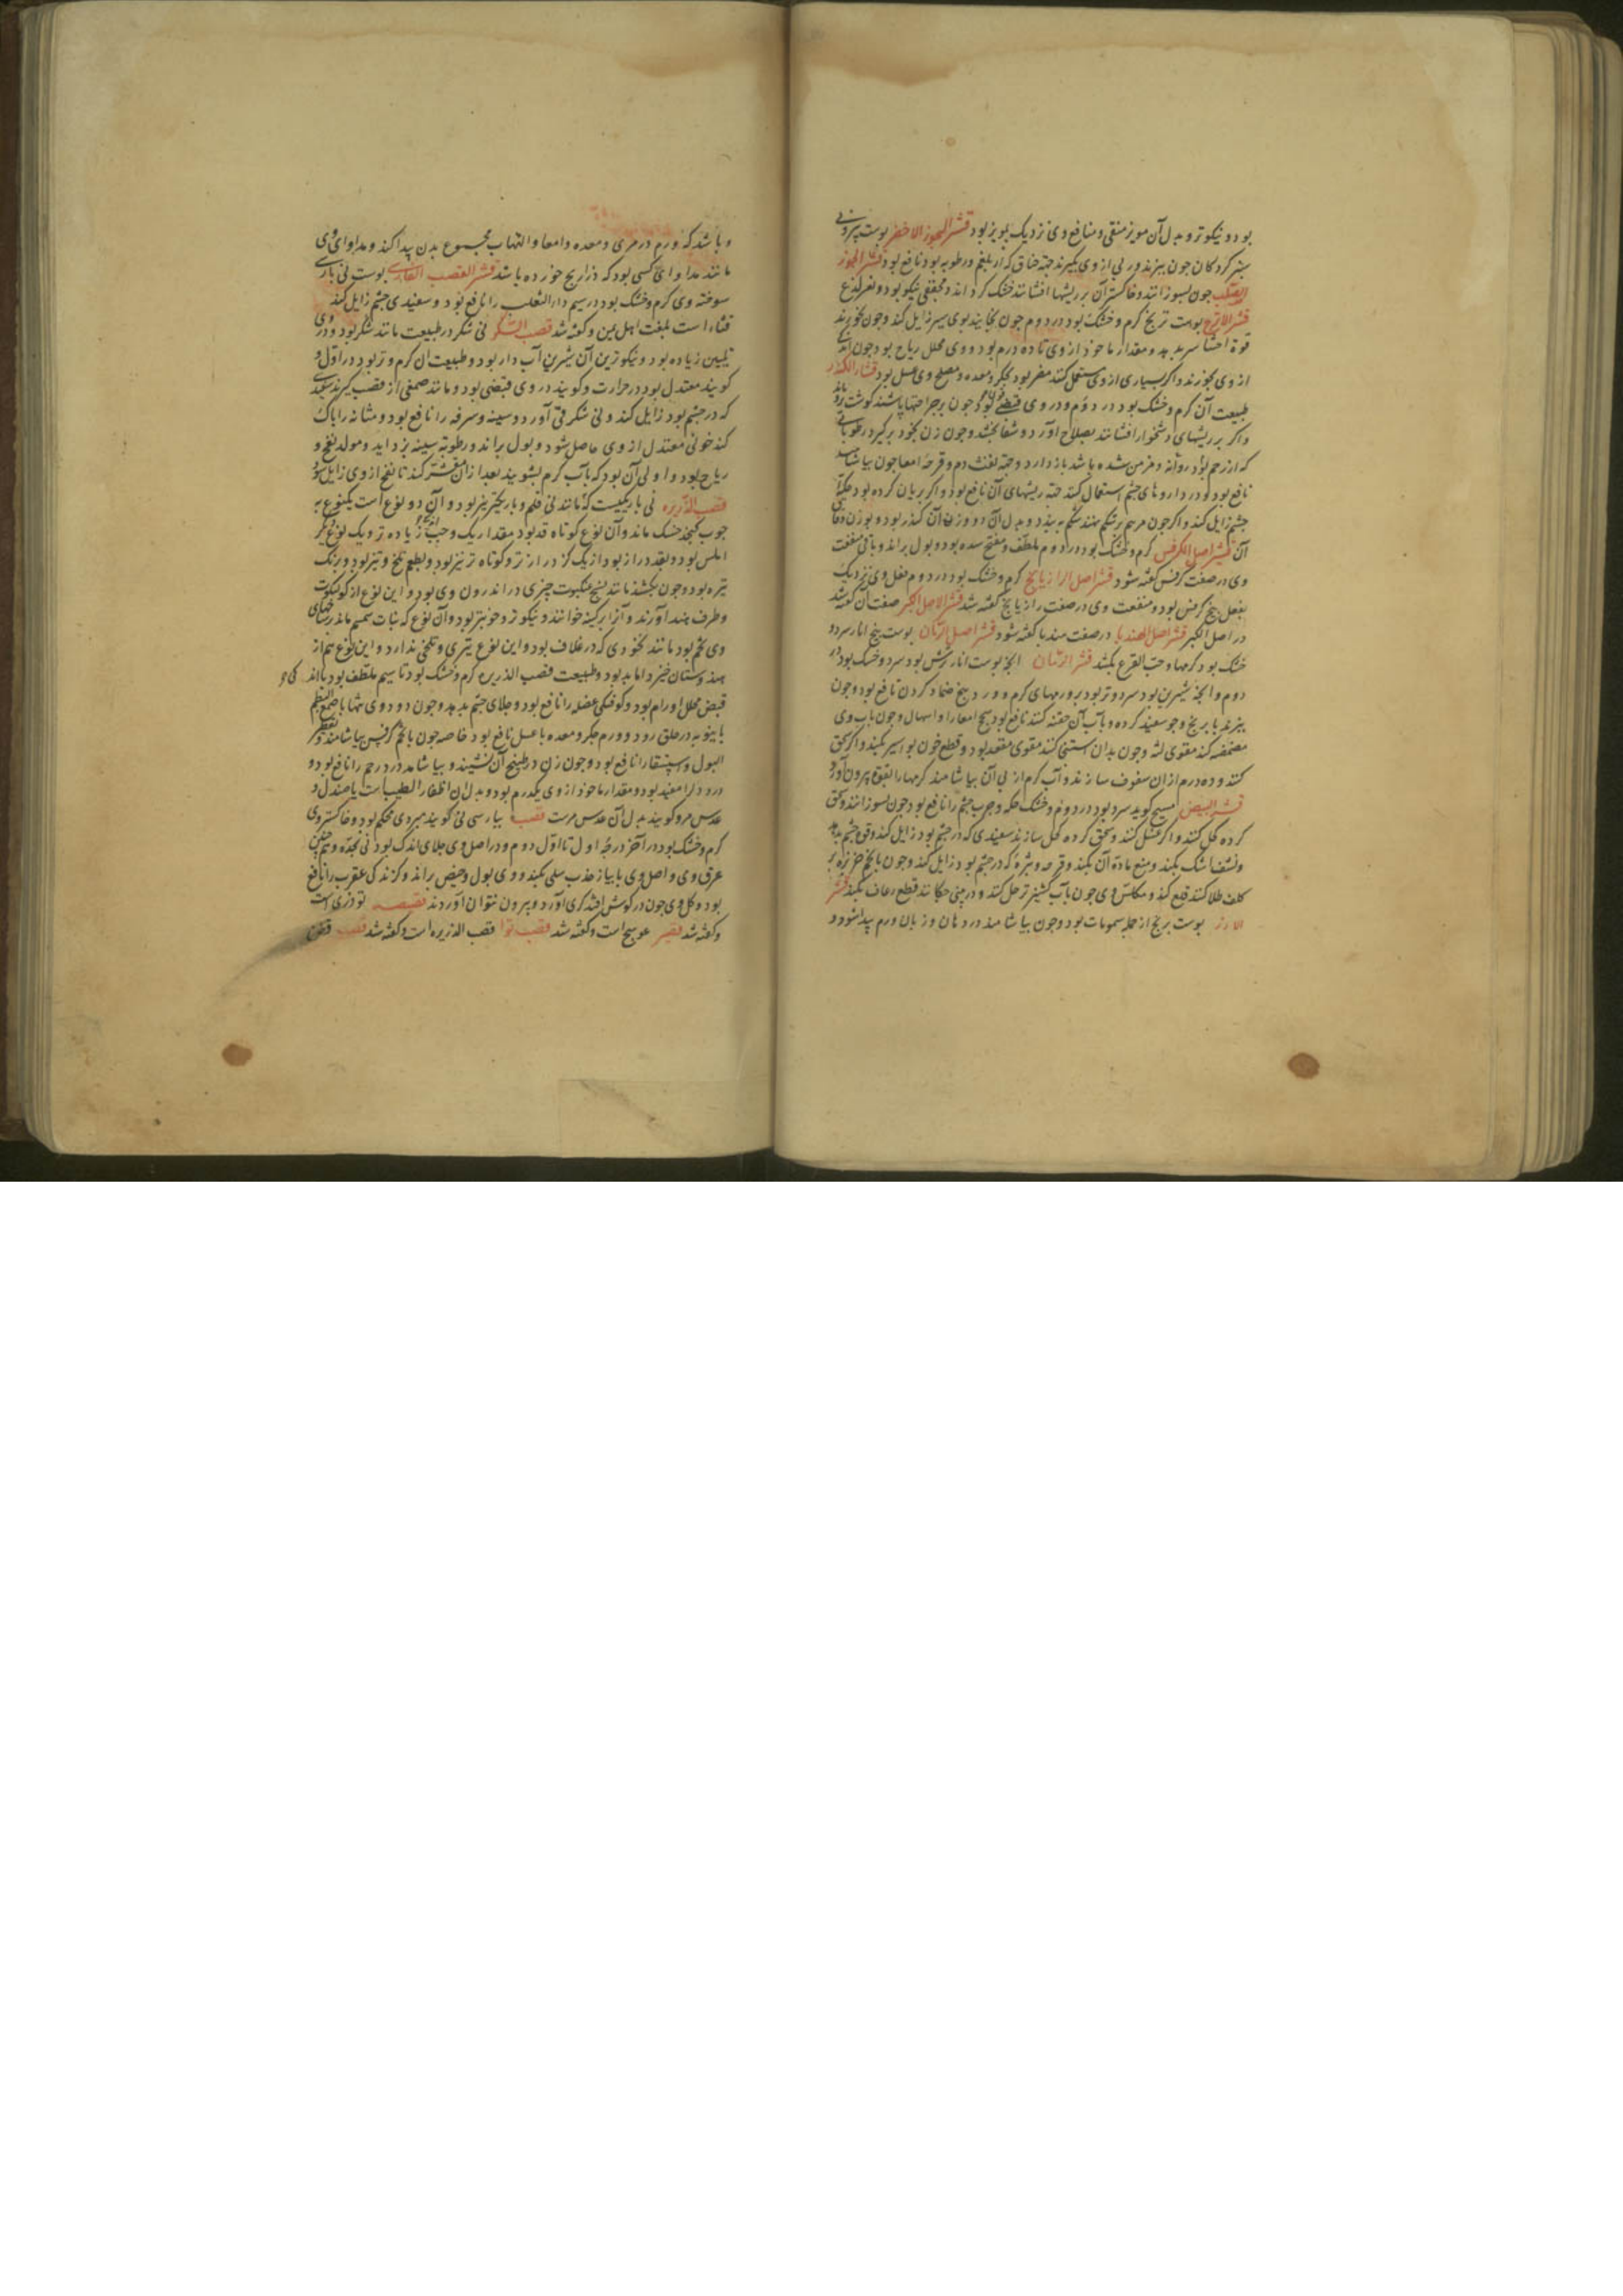 بود و نیکوتر و بدل آن مویز منقی و منافع وی نزدیک بمویز بود قشر الجوز الاخضر پوست بیرونی
سبز کردکان چون بپزند و رب از وی بگیرند جهة خناق که از بلغم و رطوبه بود نافع بود قشر الجوز
الصلب چون بسوزانند و خاکستر آن بر ریشها افشانند خشک کرداند و مجففی نیکو بود و لذع
قشر الاترج پوست ترنج کرم و خشک بود در دوم چون بخایند بوی سیر زایل کند و چون بخورند
قوة احشا بدهد و مقدار ماخوذ از وی تا ده درم بود و وی محلل ریاح بود چون اندکی
از وی بخورند و اکر بسیاری از وی مستعمل کنند مضر بود بجکر و معده و مصلح وی عسل بود قشار الکندر
طبیعت آن کرم و خشک بود در دوم و در وی قبضی بود چون بر جراحتها پاشند کوشت
و اکر بر ریشهای دشخوار افشانند بصلاح آورد و شفا بخشد و چون زن بخود برکیرد رطوباتی
که از رحم بود روانه و مزمن شده باشد باز دارد و جهة نفث دم و قرحهٔ امعا چون بیاشامند
نافع بود و در داروهای چشم استعمال کنند جهة ریشهای آن نافع بود و اکر بریان کرده بود حکهٔ
چشم زایل کند و اکر چون مرهم بر شکم نهند شکم ببندد و بدل آن دو وزن آن کندر بود و بوزن
آن قشر اصل الکرفس کرم و خشک بود در دوم ملطف و مفتح سده بود و بول براند و باقی منفعت
وی در صفت کرفس کفته شود قشر اصل الرازیانج کرم و خشک بود در دوم فعل وی نزدیک
بفعل بیخ کرفس بود و منفعت وی در صفت رازیانج کفته شد قشر الاصل الکبر صفت آن کفته شد
در اصل الکبر قشر اصل الهندبا در صفت هندبا کفته شود قشر اصل الرمان پوست بیخ انار سرد و
خشک بود کرمها و حب القرع بکشد قشر الرمان انچه پوست انار ترش بود سرد و خشک بود در
دوم و انچه شیرین بود سرد و تر بود بر ورمهای کرم و ورد بیخ ضماد کردن نافع بود و چون
بپزند با برنج و جو سفید کرده و بآب آن حقنه کنند نافع بود سحج امعا را و اسهال و چون بآب وی
مضمضه کنند مقوی لثه و چون بدان استنجا کنند مقوی مقعد بود و قطع خون بواسیر بکند و اکر سحق
کنند و ده درم از آن سفوف سازند و آب کرم از پی آن بیاشامند کرمها را بقوت بیرون آورد
قشر البیض مسیح کوید سرد بود در دوم و خشک حکه و جرب چشم را نافع بود چون بسوزانند و سحق
کرده کحل کنند و اکر غسل کنند و سحق کرده کحل سازند سفیدی که در چشم بود زایل کند و قوة چشم بدهد
و نشف اشک بکند و منع مادهٔ آن بکند و قرحه و بثرهٔ که در چشم بود زایل کند و چون با تخم خربزه بر
کلف طلا کنند قلع کند و مکلس وی چون بآب کشنیز تر حل کنند و در بینی چکانند قطع رعاف بکند قشر
الارز پوست برنج از جمله سمومات بود و چون بیاشامند در دهان و زبان ورم پیدا شود و
و باشد که ورم در مری و معده و امعا و التهاب بمجموع بدن پیدا کند و مداوای وی
مانند مداوای کسی بود که ذراریح خورده باشد قشر القصب الفارسی پوست نی پارسی
سوخته وی کرم و خشک بود در سیم دار الثعلب را نافع بود و سفیدی چشم زایل کند
قثاء است بلغت اهل یمن و کفته شد قصب السکر نی شکر در طبیعت مانند شکر بود و در وی
تلیین زیاده بود و نیکوترین آن شیرین آب دار بود و طبیعت آن کرم و تر بود در اول و
کویند معتدل بود در حرارت و کویند در وی قبضی بود و مانند صمغی از قصب کیرند سفیدی
که در چشم بود زایل کند و نی شکر قی آورد و سینه و سرفه را نافع بود و مثانه را پاک
کند خونی معتدل از وی حاصل شود و بول براند و رطوبه سینه بزداید و مولد نفخ و
ریاح بود و اولی آن بود که بآب کرم بشویند بعد از آن مقشر کنند تا نفخ از وی زایل شود
قصب الذریره نی باریکیست که مانند نی قلم و باریکتر نیز بود و آن دو نوع است یک نوع به
چوب کنجد خشک ماند و آن نوع کوتاه قد بود مقدار یک وجب زیاده تر و یک نوع دیکر
املس بود و بقد دراز بود از یک کز درازتر و کوتاه تر نیز بود و بطعم تلخ و تیز بود و برنک
تیره بود و چون بکشند مانند نسج عنکبوت چیزی در اندرون وی بود و این نوع از
و طرف هند آورند و آنرا برکینه خوانند و نیکوتر و خوبتر بود و آن نوع که نبات سمسم ماند
وی تخم بود مانند نخودی که در غلاف بود و این نوع تیزی و تلخی ندارد و این نوع هم از
هندوستان خیزد اما بد بود و طبیعت قصب الذریره کرم و خشک بود تا سیم ملطف بود با اندکی
قبض محلل اورام بود و کوفتکی عضله را نافع بود و جلای چشم بدهد و چون دود وی تنها با صمغ البطم
بانبوبه در حلق رود و ورم جکر و معده با عسل نافع بود خاصه چون با تخم کرفس بیاشامند و تقطیر
البول و استسقا را نافع بود و چون زن در طبیخ آن نشیند و بیاشامد درد رحم را نافع بود و
درد دل را مفید بود و مقدار ماخوذ از وی یکدرم بود و بدل آن اظفار الطیب است یا صندل و
عدس مر و کویند بدل آن عدس مرست قصب بپارسی نی کویند مبردی محکم بود و خاکستر وی
کرم و خشک بود در آخر درجهٔ اول تا اول دوم و در اصل وی جلای اندک بود بی حدة و همچنین
عرق وی و اصل وی با پیاز جذب سلی بکند و وی بول و حیض براند و کزندکی عقرب را نافع
بود و کل وی چون در کوش افتد کری آورد و بیرون نتوان آوردن قصیصه نودری است
و کفته شد قصیر عوسج است و کفته شد قصب بوا قصب الذریره است و کفته شد قضب